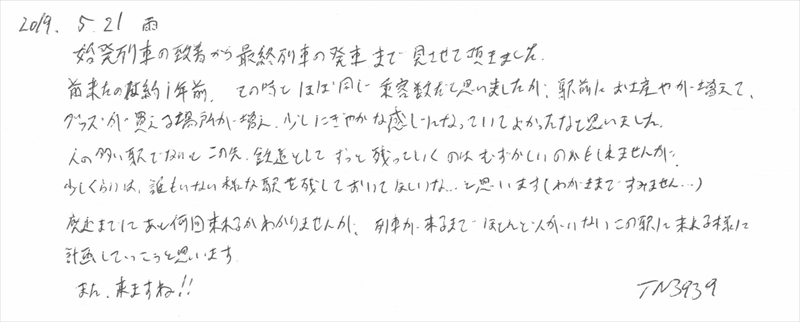 2019. 5.21 雨
始発列車の到着から最終列車の発車まで見させて頂きました。
前来たのは約1年前、その時とほぼ同じ乗客数だと思いましたが、駅前にお土産やが増えて、
グッズが買える場所が増え、少しにぎやかな感じになっていてよかったなと思いました。
人の多い駅でないとこの先、鉄道としてずっと残っていくのはむずかしいのかもしれませんが、
少しくらいは、誰もいない様な駅を残しておいてほしいな…と思います(わがままですみません…)
廃止までにあと何回来れるかわかりませんが、列車が来るまでほとんど人がいないこの駅に来れる様に
計画していこうと思います。
また、来ますね!!
TN3939